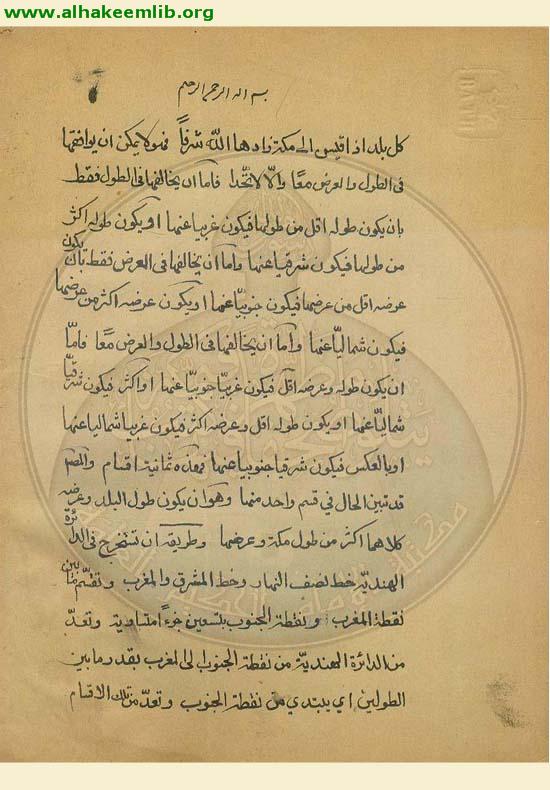 www.alhakeemlib.org
بسم الله الرحمن الرحيم
كل بلد اذا قيس الى مكة زادها الله شرفاً فهو لا يمكن ان يوافقها
فى الطول والعرض معًا والّا لاتّحدا فاما ان يخالفها فى الطول فقط
بان يكون طوله اقل من طولها فيكون غربيا عنها او يكون طوله اكثر
من طولها فيكون شرقيا عنها واما ان يخالفها فى العرض فقط بان يكون
عرضه اقل من عرضها فيكون جنوبيّا عنها او يكون عرضه اكثر من عرضها
فيكون شماليّا عنها واما ان يخالفها فى الطول والعرض معًا فامّا
ان يكون طوله وعرضه اقل فيكون غربيّا جنوبيّا عنها او اكثر فيكون شرقيّا
شماليّا عنها او يكون طوله اقل وعرضه اكثر فيكون غربيا شماليا عنها
او بالعكس فيكون شرقيا جنوبيا عنها فهذه ثمانية اقسام والمصم
قد تبين الحال فى قسم واحد منها وهو ان يكون طول البلد وعرضه
كلاهما اكثر من طول مكة وعرضها وطريقه ان تستخرج فى الدائرة
الهنديّة خط نصف النهار وخط المشرق والمغرب وتقسّم مابين
نقطة المغرب ونقطة الجنوب بتسعين جزءاً متساوية وتعدّ
من الدائرة الهنديّة من نقطة الجنوب الى المغرب بقدر مابين
الطولين اي يبتدي من نقطة الجنوب وتعدّ من تلك الاقسام